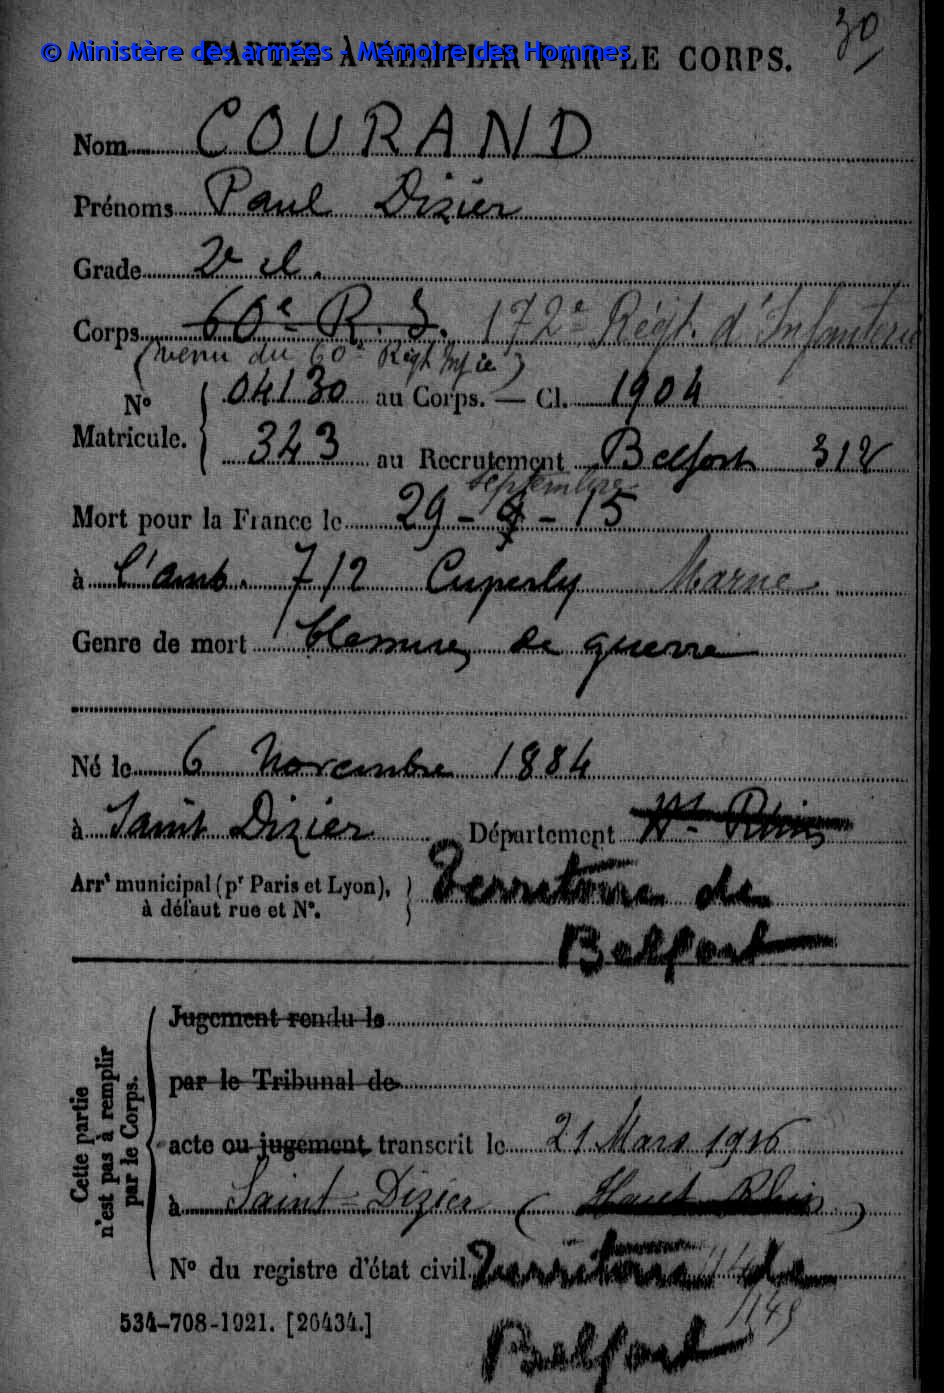 30
© Ministère des armées - Mémoire des Hommes
PARTIE À REMPLIR PAR LE CORPS.
Nom COURAND
Prénoms Paul Dizier
Grade 2e cl.
Corps 60e R. I. 172e Régt. d'Infanterie
(venu du 60e Régt Infie)
No Matricule. 04130 au Corps. — Cl. 1904
343 au Recrutement Belfort 312
septembre
Mort pour la France le 29 - 9 - 15
à l'amb. 7/2 Cuperly Marne
Genre de mort blessures de guerre
Né le 6 Novembre 1884
à Saint Dizier Département Ht Rhin
Arrt municipal (pr Paris et Lyon), Territoire de
à défaut rue et No. Belfort
Cette partie
n'est pas à remplir
par le Corps.
Jugement rendu le
par le Tribunal de
acte ou jugement transcrit le 21 Mars 1916
à Saint-Dizier (Haut Rhin)
No du registre d'état civil Territoire de
534-708-1921. [26434.] Belfort